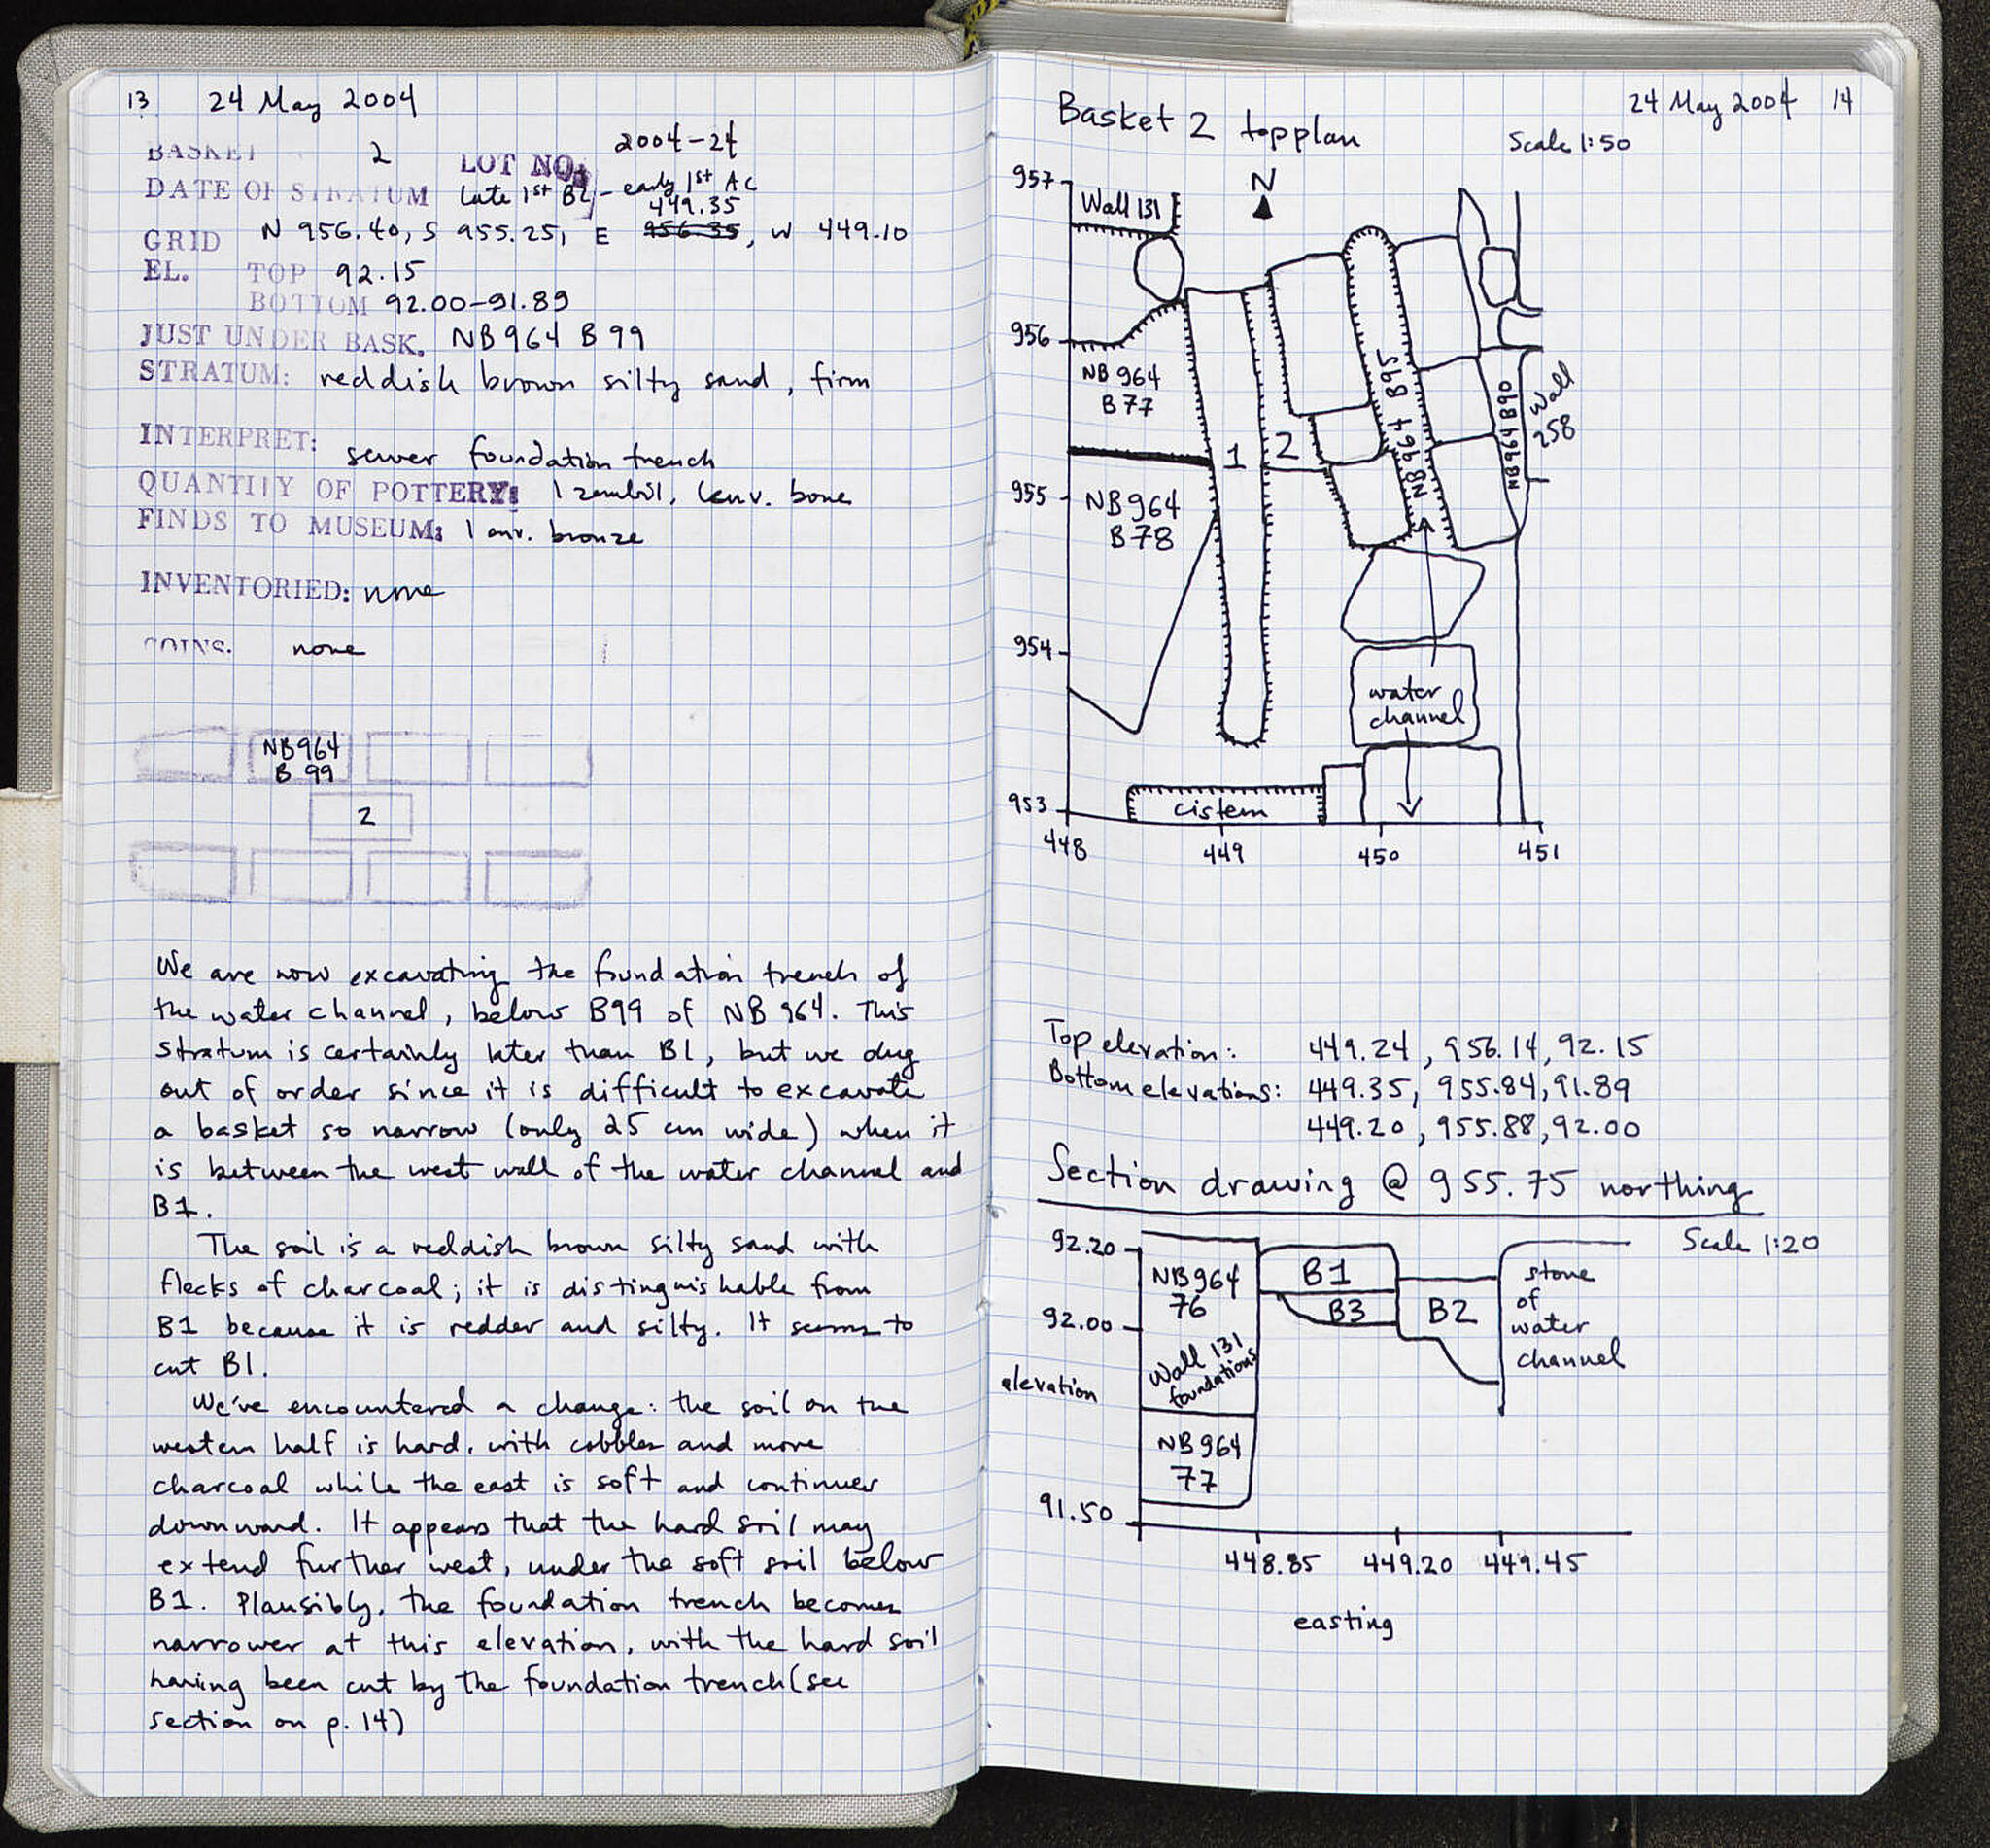 13 24 May 2004
BASKET 2 LOT NO: 2004-24
DATE OF STRATUM Late 1st BC - early 1st AC
449.35
GRID N 956.40, S 955.25, E 956.35, W 449.10
EL. TOP 92.15
BOTTOM 92.00-91.89
JUST UNDER BASK. NB964 B99
STRATUM: reddish brown silty sand, firm
INTERPRET: sewer foundation trench
QUANTITY OF POTTERY: 1 zembil, 1 env. bone
FINDS TO MUSEUM: 1 env. bronze
INVENTORIED: none
COINS. none
NB964
B 99
2
We are now excavating the foundation trench of
the water channel, below B99 of NB 964. This
stratum is certainly later than B1, but we dug
out of order since it is difficult to excavate
a basket so narrow (only 25 cm wide) when it
is between the west wall of the water channel and
B1.
The soil is a reddish brown silty sand with
flecks of charcoal; it is distinguishable from
B1 because it is redder and silty. It seems to
cut B1.
We've encountered a change: the soil on the
western half is hard, with cobbles and more
charcoal while the east is soft and continues
downward. It appears that the hard soil may
extend further west, under the soft soil below
B1. Plausibly, the foundation trench becomes
narrower at this elevation, with the hard soil
having been cut by the foundation trench (see
section on p. 14)
24 May 2004 14
Basket 2 topplan
Scale 1:50
N
957
Wall 131
956
NB 964
B77
NB 964 B95
NB964 B90
Wall
258
1 2
955
NB964
B78
954
water
channel
953
cistern
448 449 450 451
Top elevation: 449.24, 956.14, 92.15
Bottom elevations: 449.35, 955.84, 91.89
449.20, 955.88, 92.00
Section drawing @ 955.75 northing
Scale 1:20
92.20
NB964
76
B1
B3
B2
stone
of
water
channel
92.00
Wall 131
foundations
elevation
NB964
77
91.50
448.85 449.20 449.45
easting